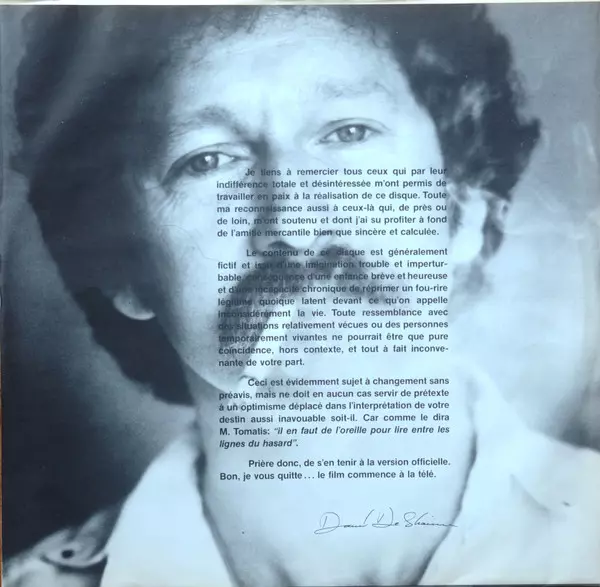 Je tiens à remercier tous ceux qui par leur
indifférence totale et désintéressée m'ont permis de
travailler en paix à la réalisation de ce disque. Toute
ma reconnaissance aussi à ceux-là qui, de près ou
de loin, m'ont soutenu et dont j'ai su profiter à fond
de l'amitié mercantile bien que sincère et calculée.
Le contenu de ce disque est généralement
fictif et issu d'une imagination trouble et impertur-
bable, conséquence d'une enfance brève et heureuse
et d'une incapacité chronique de réprimer un fou-rire
légitime quoique latent devant ce qu'on appelle
inconsidérément la vie. Toute ressemblance avec
des situations relativement vécues ou des personnes
temporairement vivantes ne pourrait être que pure
coïncidence, hors contexte, et tout à fait inconve-
nante de votre part.
Ceci est évidemment sujet à changement sans
préavis, mais ne doit en aucun cas servir de prétexte
à un optimisme déplacé dans l'interprétation de votre
destin aussi inavouable soit-il. Car comme le dira
M. Tomatis: "il en faut de l'oreille pour lire entre les
lignes du hasard".
Prière donc, de s'en tenir à la version officielle.
Bon, je vous quitte... le film commence à la télé.